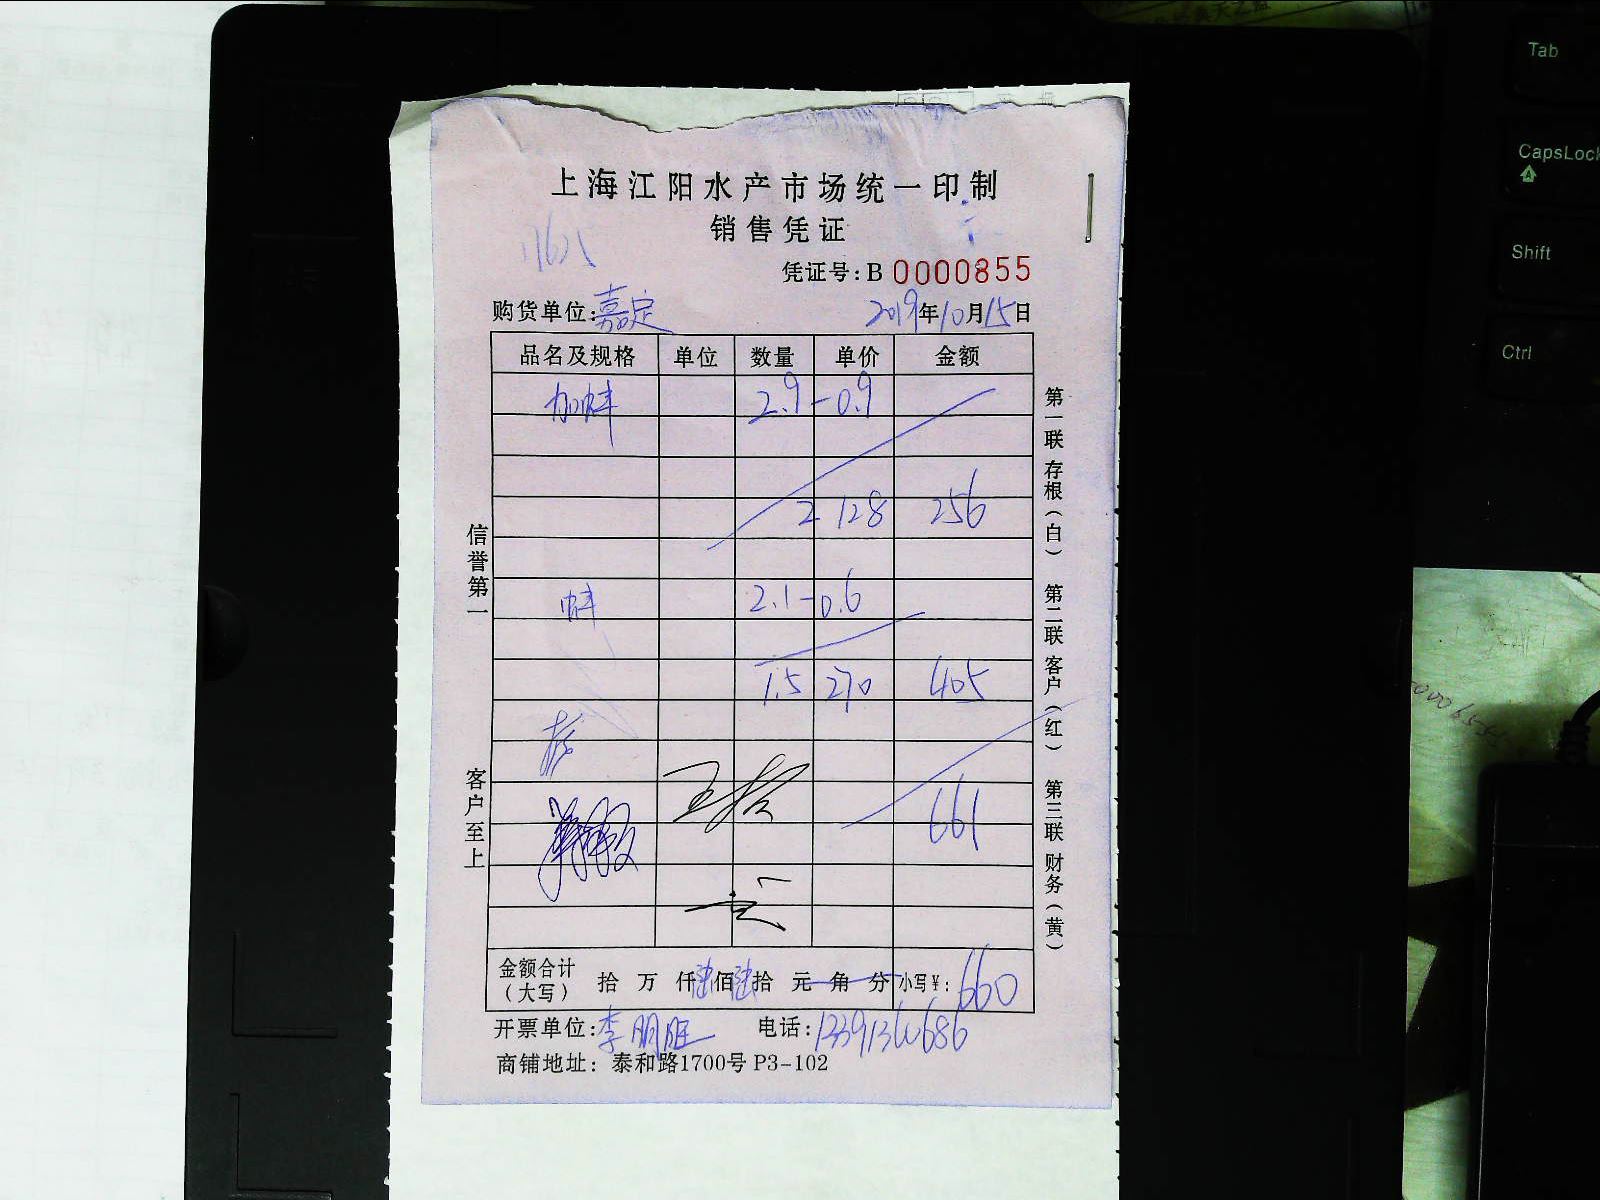 上海江阳水产市场统一印制
销售凭证
凭证号:B 0000855
购货单位:嘉定 2019年10月15日
品名及规格 单位 数量 单价 金额
加蚌 2.9-0.9
2 128 256
蚌 2.1-0.6
1.5 270 405
661
信誉第一
客户至上
第一联 存根(白)
第二联 客户(红)
第三联 财务(黄)
金额合计(大写) 拾 万 仟 佰 拾 元 角 分 小写¥: 660
开票单位:李 电话:
商铺地址: 泰和路1700号 P3-102
Tab
CapsLock
Shift
Ctrl